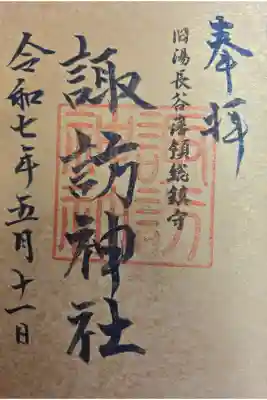 奉拝
旧湯長谷藩領総鎮守
諏訪神社
令和七年五月十一日